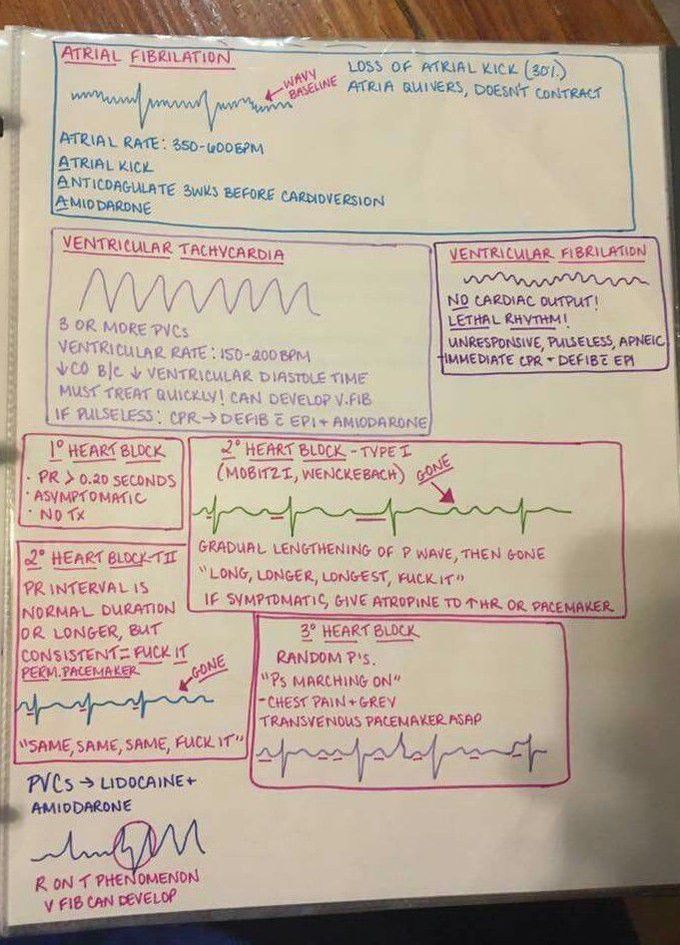 ATRIAL FIBRILATION
LOSS OF ATRIAL KICK (30%)
ATRIA QUIVERS, DOESN'T CONTRACT
WAVY
BASELINE
ATRIAL RATE: 350-600BPM
ATRIAL KICK
ANTICOAGULATE 3WKS BEFORE CARDIOVERSION
AMIODARONE
VENTRICULAR TACHYCARDIA
3 OR MORE PVCS
VENTRICULAR RATE: 150-200BPM
↓CO B/C ↓ VENTRICULAR DIASTOLE TIME
MUST TREAT QUICKLY! CAN DEVELOP V.FIB
IF PULSELESS: CPR → DEFIB c̄ EPI + AMIODARONE
VENTRICULAR FIBRILATION
NO CARDIAC OUTPUT!
LETHAL RHYTHM!
UNRESPONSIVE, PULSELESS, APNEIC
-IMMEDIATE CPR + DEFIB c̄ EPI
1° HEART BLOCK
· PR > 0.20 SECONDS
· ASYMPTOMATIC
· NO TX
2° HEART BLOCK - TYPE I
(MOBITZ I, WENCKEBACH)
GONE
GRADUAL LENGTHENING OF P WAVE, THEN GONE
"LONG, LONGER, LONGEST, FUCK IT"
IF SYMPTOMATIC, GIVE ATROPINE TO ↑HR OR PACEMAKER
2° HEART BLOCK-TII
PR INTERVAL IS
NORMAL DURATION
OR LONGER, BUT
CONSISTENT = FUCK IT
PERM. PACEMAKER
GONE
"SAME, SAME, SAME, FUCK IT"
3° HEART BLOCK
RANDOM P'S.
"Ps MARCHING ON"
-CHEST PAIN + GREY
TRANSVENOUS PACEMAKER ASAP
PVCs → LIDOCAINE +
AMIODARONE
R ON T PHENOMENON
V FIB CAN DEVELOP